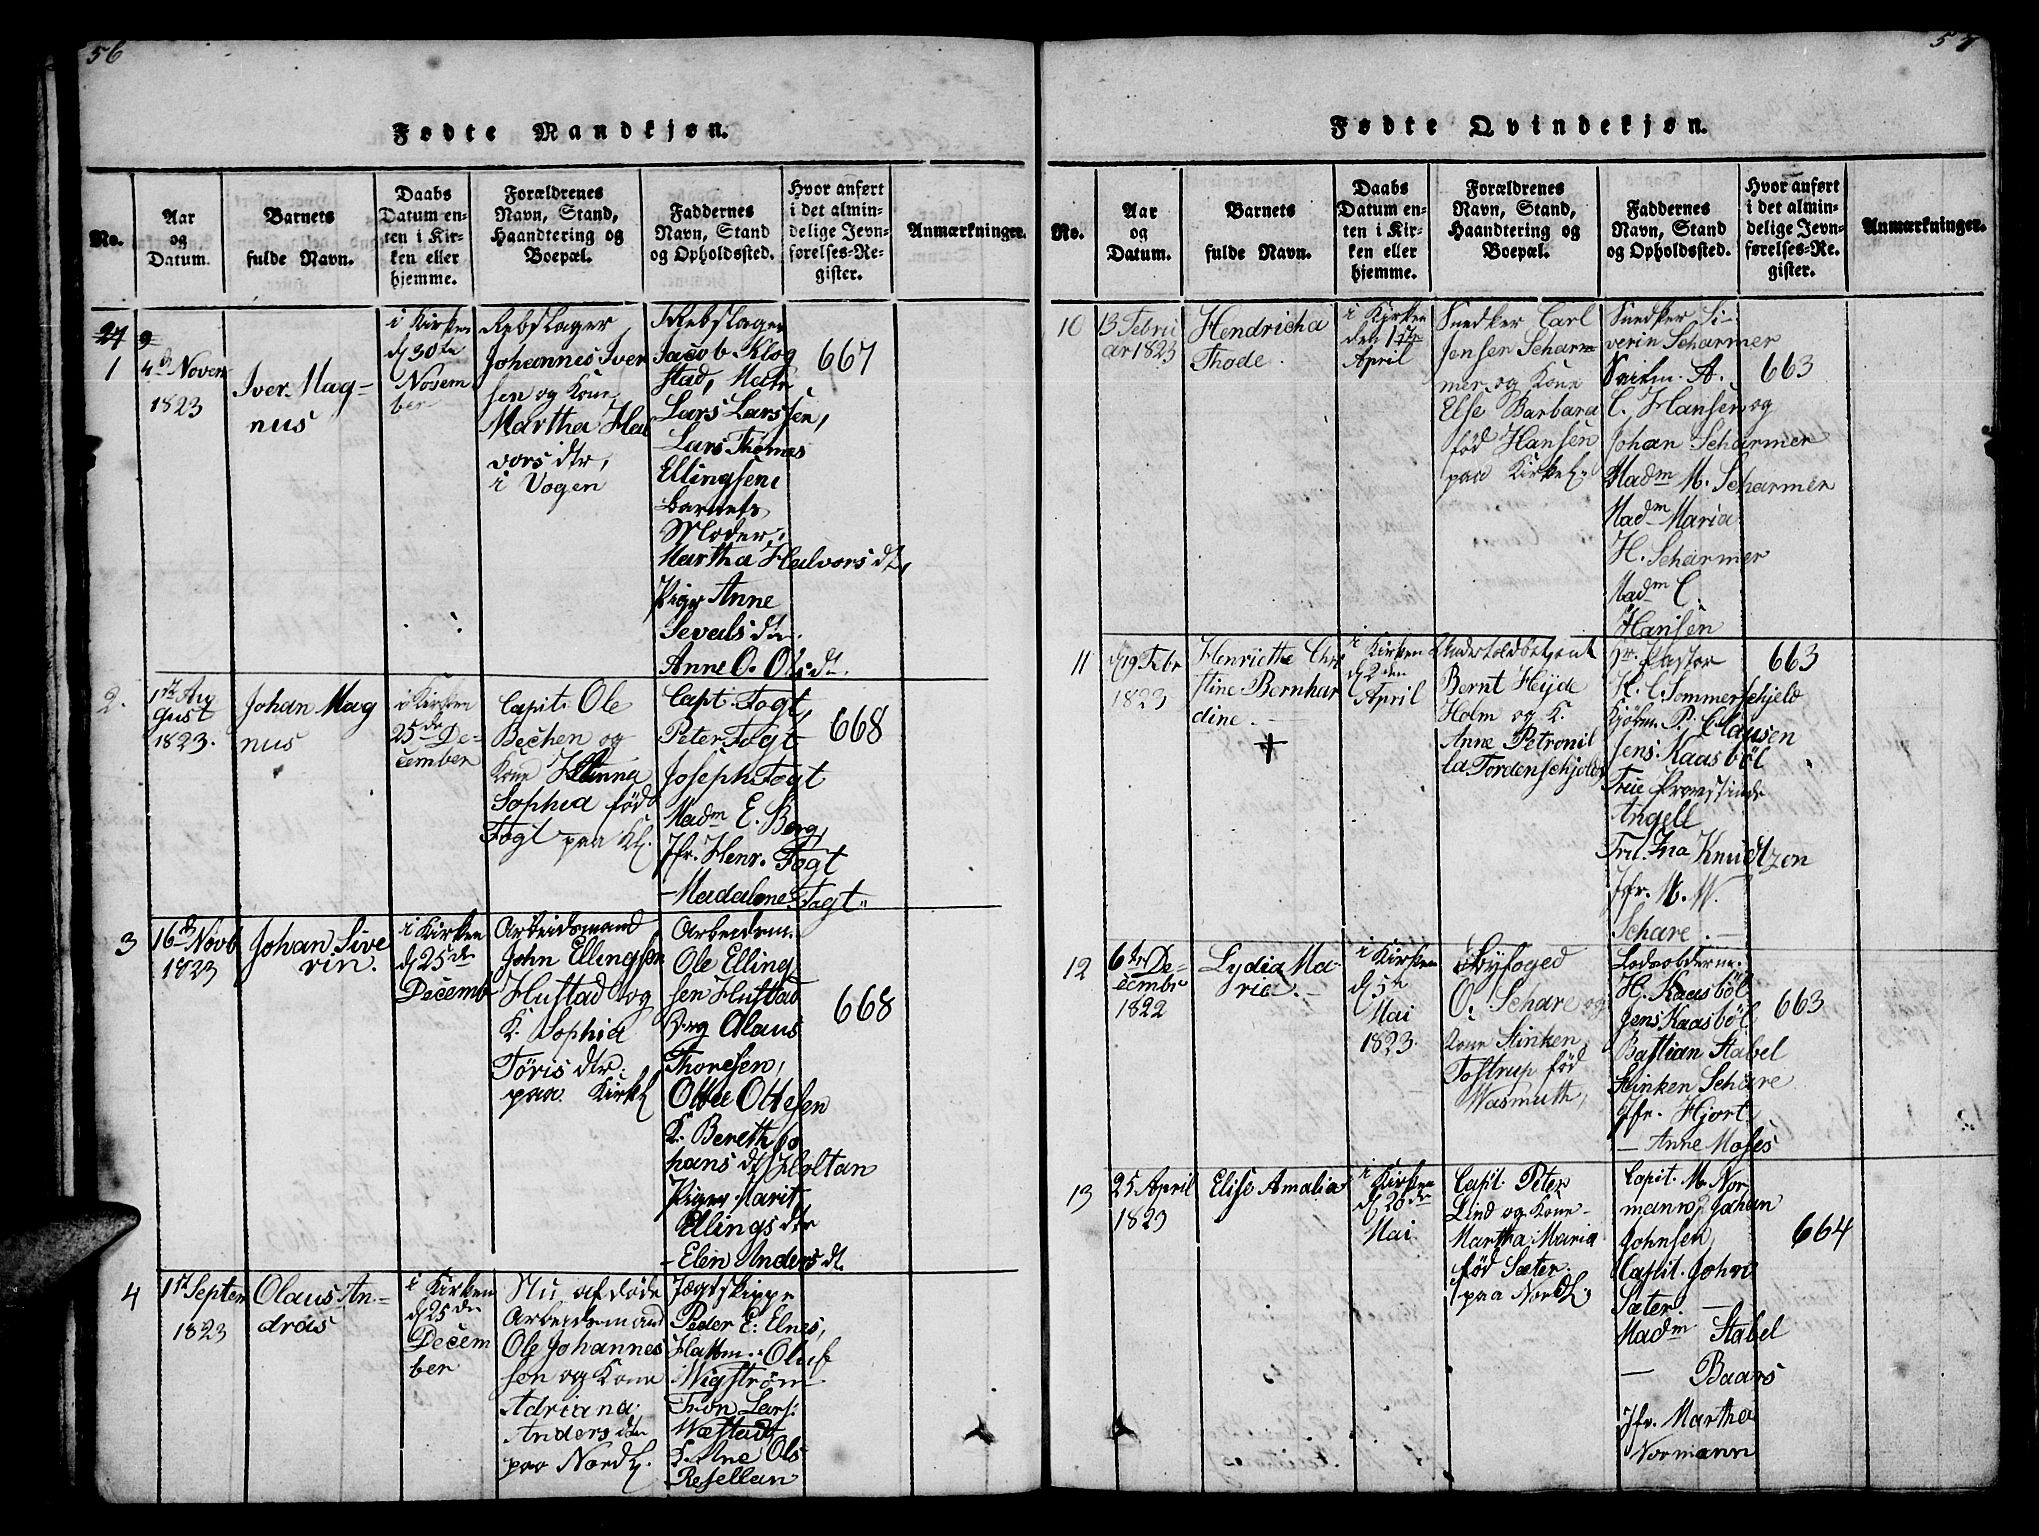 56
Fødte Mandkjøn.
No.
Aar
og
Datum.
Barnets
fulde Navn.
Daabs
Datum en-
ten i Kir-
ken eller
hjemme.
Forældrenes
Navn, Stand,
Haandtering og
Boepæl.
Faddernes
Navn, Stand
og Opholdssted.
Hvor anført
i det almin-
delige Jevn-
førelses-Re-
gister.
Anmærkninger.
1
4de Novem
1823
Iver Mag-
nus
i Kirken
d 30te
Novem
ber
Rebslager
Johannes Iver
sen og Kone
Martha Hal
vors dtr,
i Vogen
Rebslager
Jacob Klog
stad, Matr
Lars Larssen,
Lars Thomas
Ellingsen
Barnets
Moder,
Martha Halvors dt,
Pige Anne
Sevals dtr.
Anne O. Ols dt.
667
2.
1ste Au
gust
1823.
Johan Mag
nus
i Kirken
25de De-
cember
Capit. Ole
Bechen og
Kone Hanna
Sophia født
Fogt paa Kl.
Capt. Fogt,
Peter Fogt
Joseph Fogt
Madm E. Berg,
Jfr. Henr. Fogt
- Madalene Fogt.
668
3
16de Novb
1823
Johan Sive
rin.
i Kirken
d 25de
Decemb
Arbeidsmand
John Ellingsen
Hustad og
K. Sophia
Tøris dtr.
paa Kirkl
Arbeidsm.
Ole Elling
sen Hustad
Brg Olaus
Thoresen,
Otte Ottesen
K. Bereth Jo
hans dt Holtan
Piger Marit
Ellings dtr
- Elen Anders dt.
668
4
1ste Septem
1823
Olaus An-
dreas
i Kirken
d 25de
Decem
ber
Nu afdøde
Arbeidsmand
Ole Johannes
sen og Kone
Adriana
Anders dtr
paa Nordl.
Jægtskippr
Peder E. Elnes,
Hattm. Oluf
Wigstrøm
Tron Lars.
Wæstad
P. Ane Ols
Resellan
57
Fødte Qvindekjøn.
No.
Aar
og
Datum.
Barnets
fulde Navn.
Daabs
Datum en-
ten i Kir-
ken eller
hjemme.
Forældrenes
Navn, Stand,
Haandtering og
Boepæl.
Faddernes
Navn, Stand
og Opholdssted.
Hvor anført
i det almin-
delige Jevn-
førelses-Re-
gister.
Anmærkninger.
10
13 Febru
ar 1823
Hendricha
Thode.
i Kirken
den 1ste
April
Snedker Carl
Jensen Scharm
mer og Kone
Else Barbara
fød Hansen
paa Kirkel.
Snedker Si-
verin Scharmer
C. Hansen og
Johan Scharmer
Madm M. Scharmer
Madm Maria
H. Scharmer
Madm C.
Hansen
663
11
d 19 Febr
1823
Henriethe Chri
stine Bernhar
dine.
+
i Kirken
d 2den
April
Bernt Heyde
Holm og K.
Anne Petronil
la Tordenschjold
Hr. Pastor
H. C. Sommerschjeld
Kjøbm. P. Clausen
Jens Kaasbøl
Frue Provstinde
Angell
Fru. Ina Knudtzon
Jfr. M. W.
Schare.
663
12
6te De-
cembr
1822
Lydia Ma-
rie.
i Kirken
d 5te
Mai
1823.
Byfoged
O. Schare og
Kone Stinken
Tostrup fød
Wasmuth,
Lodsolderm.
H. Kaasbøl
Jens Kaasbøl
Bastian Stabel
Stinken Schare
Jfr. Hjort
- Anne Moses
663
13
25 April
1823
Elise Amalia
i Kirken
d 26de
Mai
Capt. Peter
Lind og Kone
Martha Maria
fød Sæter
paa Nordl.
Capit. M. Nor
mann, Johan
Johnsen,
Capit. John
Sæter.
Madm Stabel
- Baars
Jfr. Martha
Normann
664